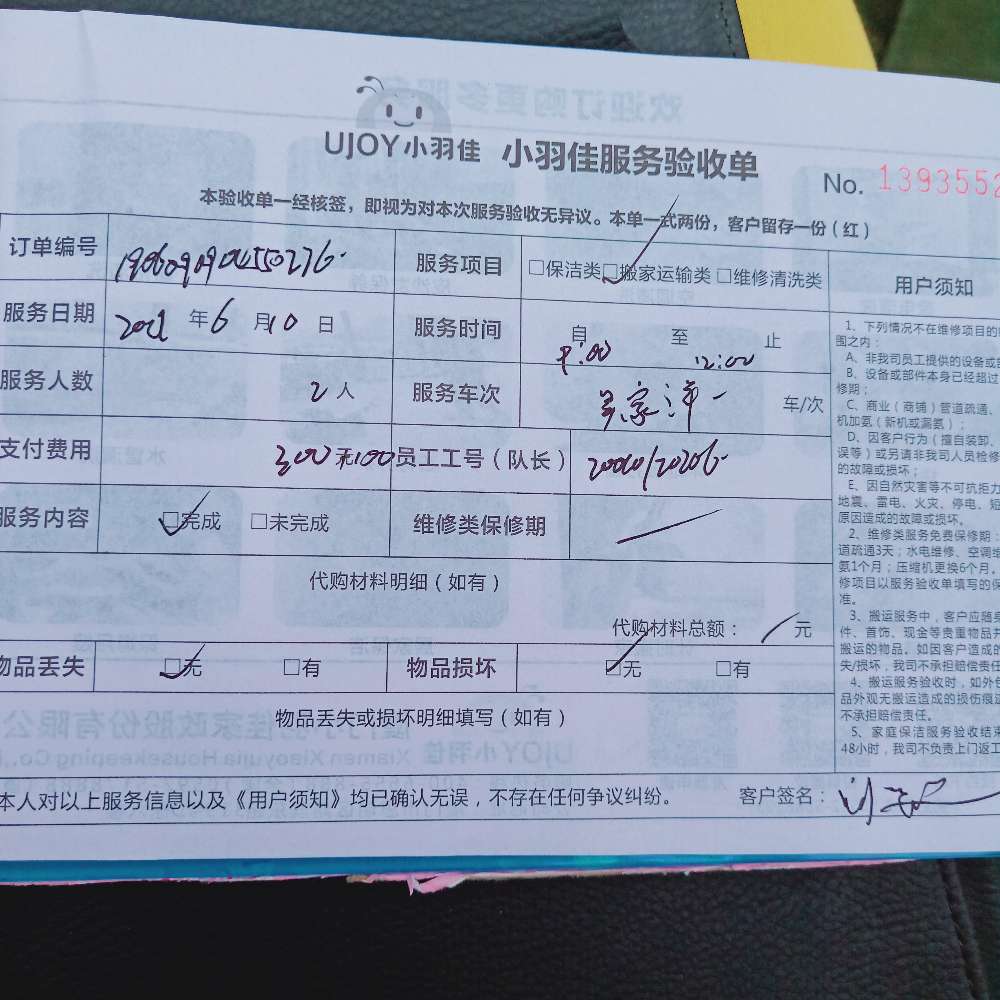 UJOY小羽佳 小羽佳服务验收单
No. 1393552
本验收单一经核签，即视为对本次服务验收无异议。本单一式两份，客户留存一份（红）
订单编号
服务项目 □保洁类□搬家运输类□维修清洗类
用户须知
服务日期 2021 年 6 月 10 日
服务时间 自 至 止
9:00 12:00
服务人数 2 人
服务车次 车/次
支付费用 300
员工工号（队长）
服务内容 □完成 □未完成
维修类保修期
代购材料明细（如有）
代购材料总额： 元
物品丢失 □无 □有
物品损坏 □无 □有
物品丢失或损坏明细填写（如有）
本人对以上服务信息以及《用户须知》均已确认无误，不存在任何争议纠纷。
客户签名：
1、下列情况不在维修项目的
围之内：
A、非我司员工提供的设备或
B、设备或部件本身已经超过
修期；
C、商业（商铺）管道疏通、
机加氨（新机或漏氨）；
D、因客户行为（擅自装卸、
误等）或另请非我司人员检修
的故障或损坏；
E、因自然灾害等不可抗拒力
地震、雷电、火灾、停电、短
原因造成的故障或损坏。
2、维修类服务免费保修期：
道疏通3天；水电维修、空调
氨1个月；压缩机更换6个月。
修项目以服务验收单填写的保
准。
3、搬运服务中，客户应随身
件、首饰、现金等贵重物品并
搬运的物品。如因客户造成的
失/损坏，我司不承担赔偿责任
4、搬运服务验收时，如外包
品外观无搬运造成的损伤痕
不承担赔偿责任。
5、家庭保洁服务验收结束
48小时，我司不负责上门返工